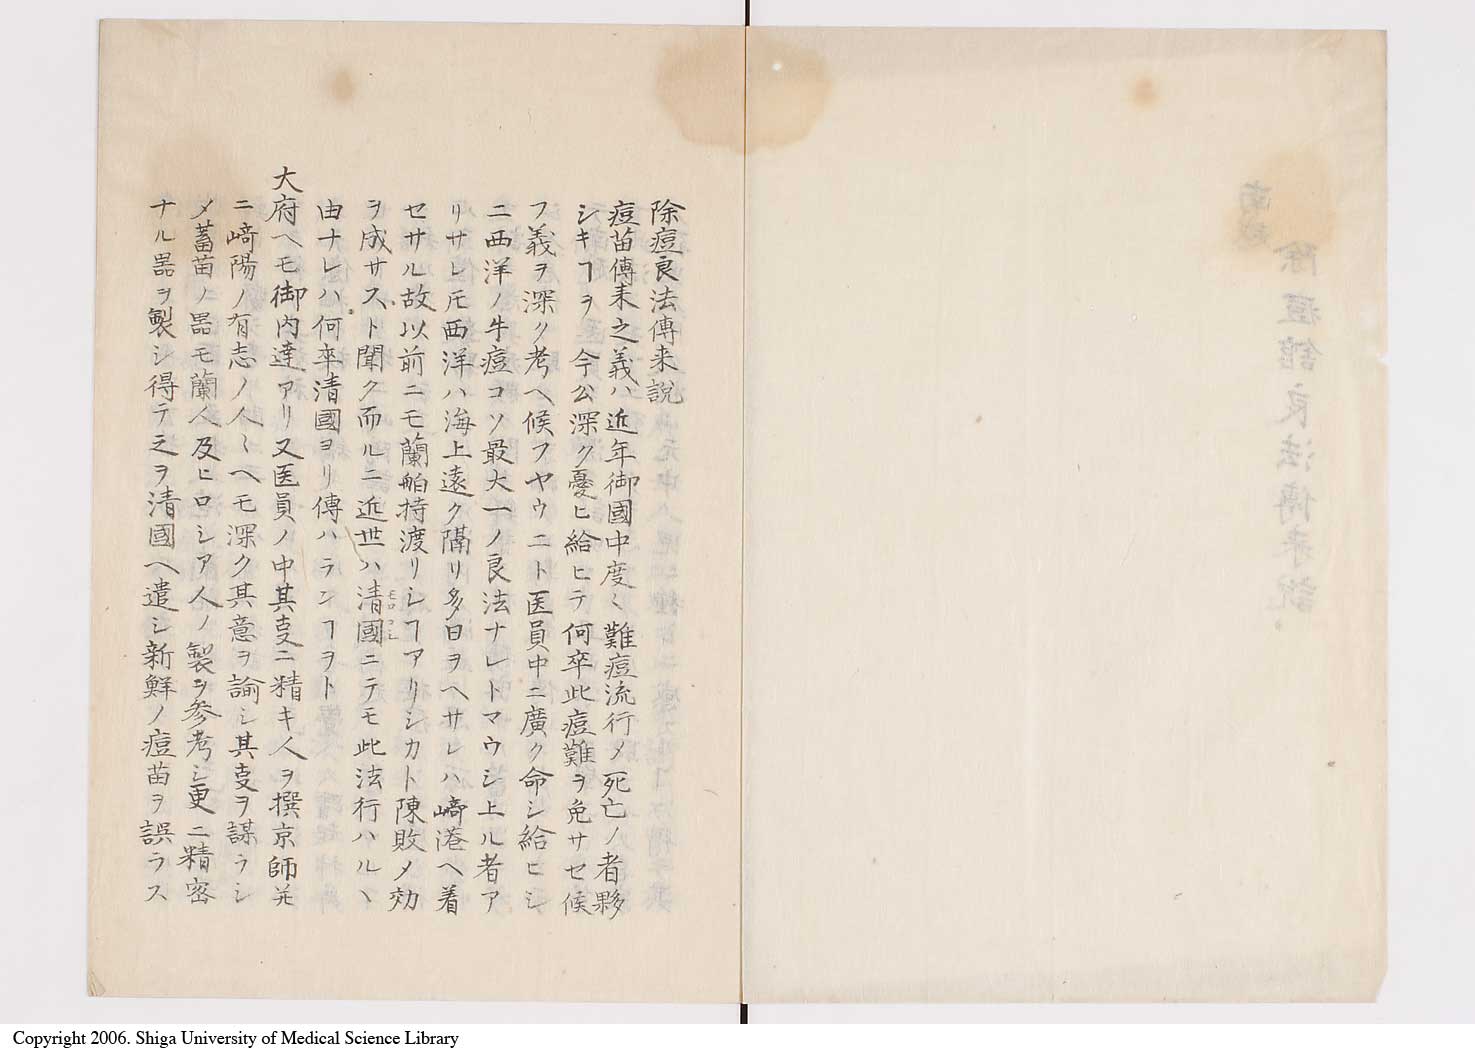 除痘良法傳来説
痘苗傳来之義ハ近年御國中度〻難痘流行〆死亡ノ者夥
シキヿヲ今公深ク憂ヒ給ヒテ何卒此痘難ヲ免サセ候
フ義ヲ深ク考ヘ候フヤウニト医員中ニ廣ク命シ給ヒシ
ニ西洋ノ牛痘コソ最大一ノ良法ナレトマウシ上ル者ア
リサレ𪜈西洋ハ海上遠ク隔リ多日ヲヘサレハ﨑港ヘ着
セサル故以前ニモ蘭舶持渡リシヿアリシカト陳敗〆効
ヲ成サスト聞ク而ルニ近世ハ清國ニテモ此法行ハルヽ
モロコシ
由ナレハ何卒清國ヨリ傳ハランヿヲト
大府ヘモ御内達アリ又医員ノ中其叓ニ精キ人ヲ撰京師并
ニ﨑陽ノ有志ノ人〻ヘモ深ク其意ヲ諭シ其叓ヲ謀ラシ
メ蓄苗ノ器モ蘭人及ヒロシア人ノ製ヲ参考シ更ニ精密
ナル器ヲ製シ得テ之ヲ清國ヘ遣シ新鮮ノ痘苗ヲ誤ラス
Copyright 2006. Shiga University of Medical Science Library